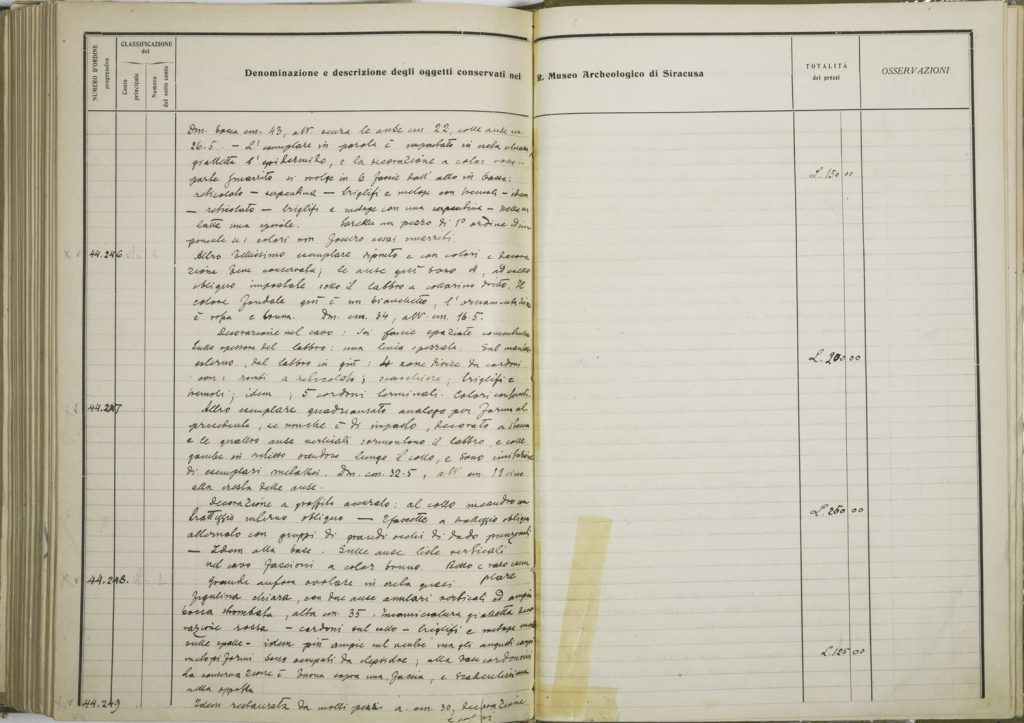 NUMERO D'ORDINE progressivo
CLASSIFICAZIONE del
Conto principale
Numero del sotto conto
Denominazione e descrizione degli oggetti conservati nel R. Museo Archeologico di Siracusa
TOTALITÀ dei prezzi
OSSERVAZIONI
Dm. bocca cm. 43, alt. senza le anse cm 22, colle anse cm.
26.5. – L'esemplare in parola è impastato in creta chiara
gialletta l'epidermide, e la decorazione a color
parte smarrito si svolge in 6 fascie dall'alto in basso:
reticolato – serpentina – triglifi e metope con tremoli – idem
– reticolato – triglifi e metope con una serpentina –
tutta una spirale. Sarebbe un pezzo di 1° ordine ed im
ponente se i colori non fossero assai smarriti.
L. 150 00
44.246
Altro bellissimo esemplare dipinto e con colori e decora
zione bene conservata; le anse qui sono 4, ad anello
obliquo impostate sotto il labbro a collarino dritto. Il
colore fondale qui è un bianchetto, l'ornamentazione
è rossa e bruna. Dm. cm. 34, alt. cm. 16.5.
Decorazione nel cavo: sei fascie spaziate concentriche
sullo spessore del labbro: una linea spezzata. Sul
esterno, dal labbro in giù: zone divise da cordoni
con: rombi a reticolato; scacchiera; triglifi e
tremoli; idem; 5 cordoni terminali. Colori conservati.
L. 200 00
44.247
Altro esemplare quadriansato analogo per forma al
precedente, se nonchè è di impasto, decorato a stecca
e le quattro anse verticali sormontano il labbro, e colle
gambe in rilievo scendono lungo il collo, e sono imitazione
di esemplari metallici. Dm. cm. 32.5, alt cm. 19 sino
alla cresta delle anse.
Decorazione a graffito accurato: al collo meandro con
tratteggio interno obliquo – a tratteggio obliquo
alternato con gruppi di grandi occhi di dado punzonati
– Idem alla base. Sulle anse liste verticali
nel cavo fascioni a color bruno. Bello e raro esem
plare
L. 250 00
44.248.
Grande anfora ovolare in creta quasi
figulina chiara, con due anse anulari verticali ed ampia
bocca strombata, alta cm. 35. Incamiciatura gialletta deco
razione rossa – cordoni sul collo – triglifi e metope
sulle spalle – idem più ampie sul ventre ma gli angusti campi
metopiformi sono occupati da clepsidre; alla base cordoncini
La conservazione è buona sopra una faccia, e scadentissima
nella opposta
L. 125 00
44.249
Idem restaurata da molti pezzi a. cm. 30, decorazione